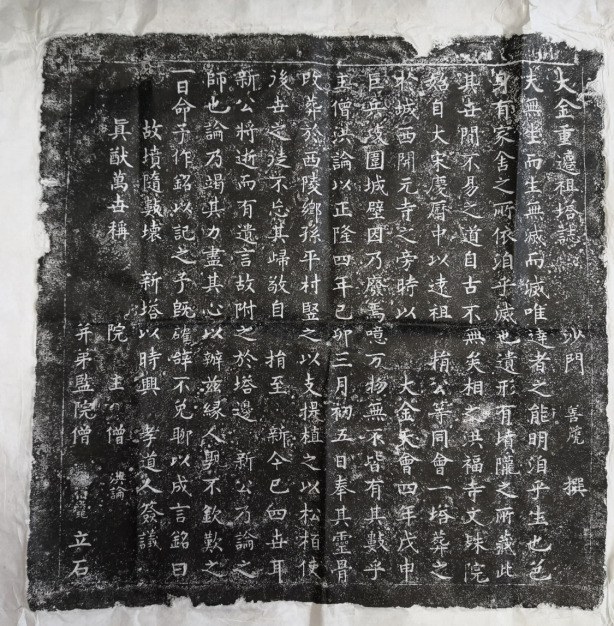 大金重遷祖塔誌 沙門 善 撰
夫無生而生無滅而滅唯達者之能明洎乎生也色
身有家舍之所依洎乎滅也遺形有墳隴之所藏此
其世間不易之道自古不無矣相 洪福寺文殊院
始自大宋慶曆中以遠祖 等同會一塔葬之
於城西開元寺之旁時以 大金天會四年戊申
巨兵 圍城壁因乃廢焉噫万物無不皆有其數乎
主僧洪論以正隆四年己卯三月初五日奉其靈骨
改葬於西陵鄉孫平村竪之以支提植之以松柏使
後世之徒不忘其歸敬自 至 新今已四世耳
新公將逝而有遺言故附之於塔邊 新公乃論之
師也論乃竭其力盡其心以辦茲緣人 不欽歎之
一日命予作銘以記之予旣確辭不免聊以成言銘曰
故墳隨數壞 新塔以時興 孝道人 議
眞猷萬世稱 院主僧 洪論
并弟監院僧 立石